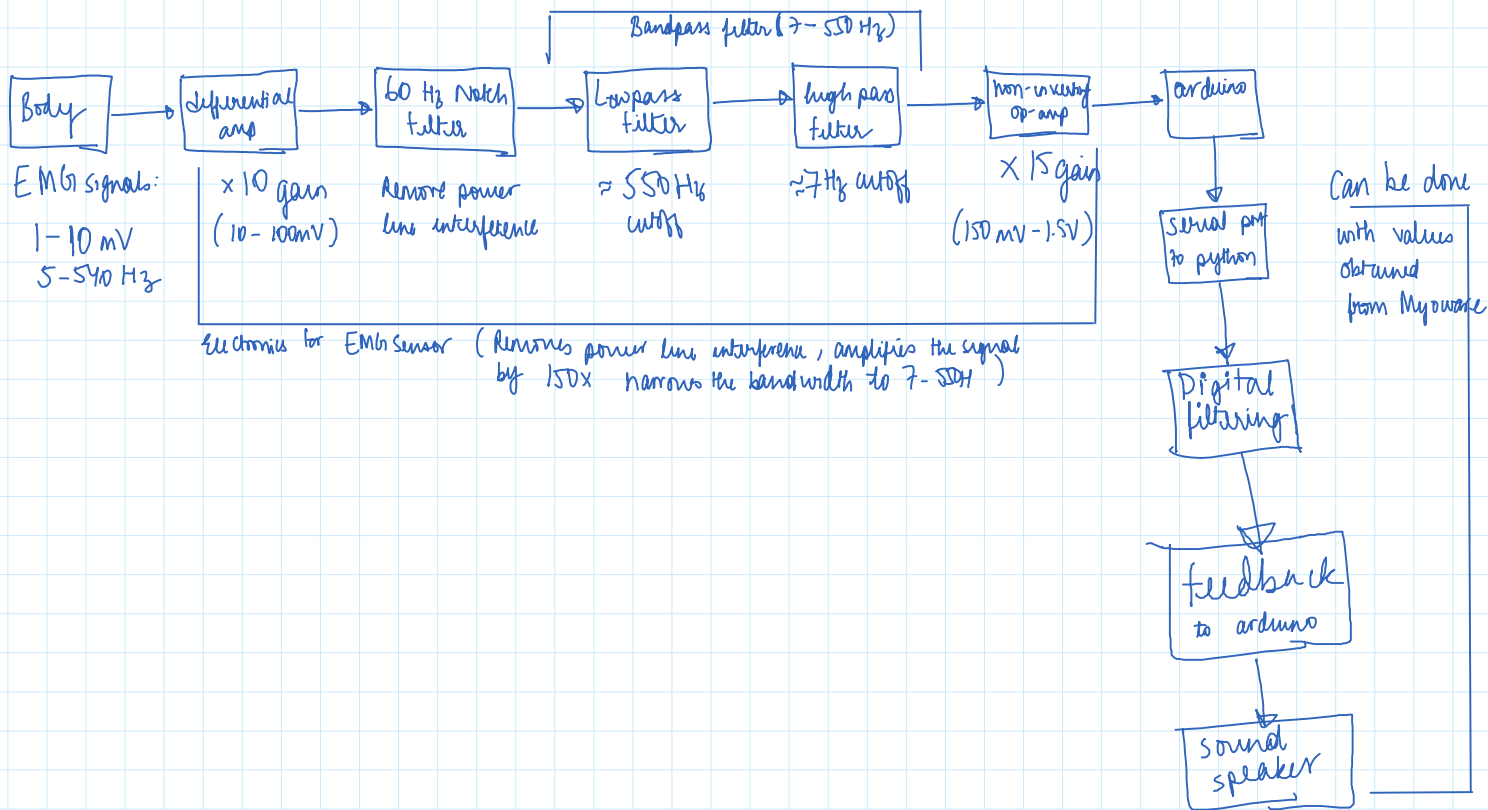 Bandpass filter (7-550 Hz)
Body
differential
amp
60 Hz Notch
filter
Lowpass
filter
high pass
filter
non-inverting
op-amp
arduino
EMG signals:
1-10 mV
5-540 Hz
x 10 gain
(10-100mV)
Remove power
line interference
≈ 550 Hz
cutoff
≈7 Hz cutoff
X 15 gain
(150 mV-1.5V)
serial port
to python
Can be done
with values
obtained
from Myoware
Electronics for EMG Sensor (Removes power line interference, amplifies the signal
by 150X narrows the bandwidth to 7-550H)
Digital
filtering
feedback
to arduino
sound
speaker